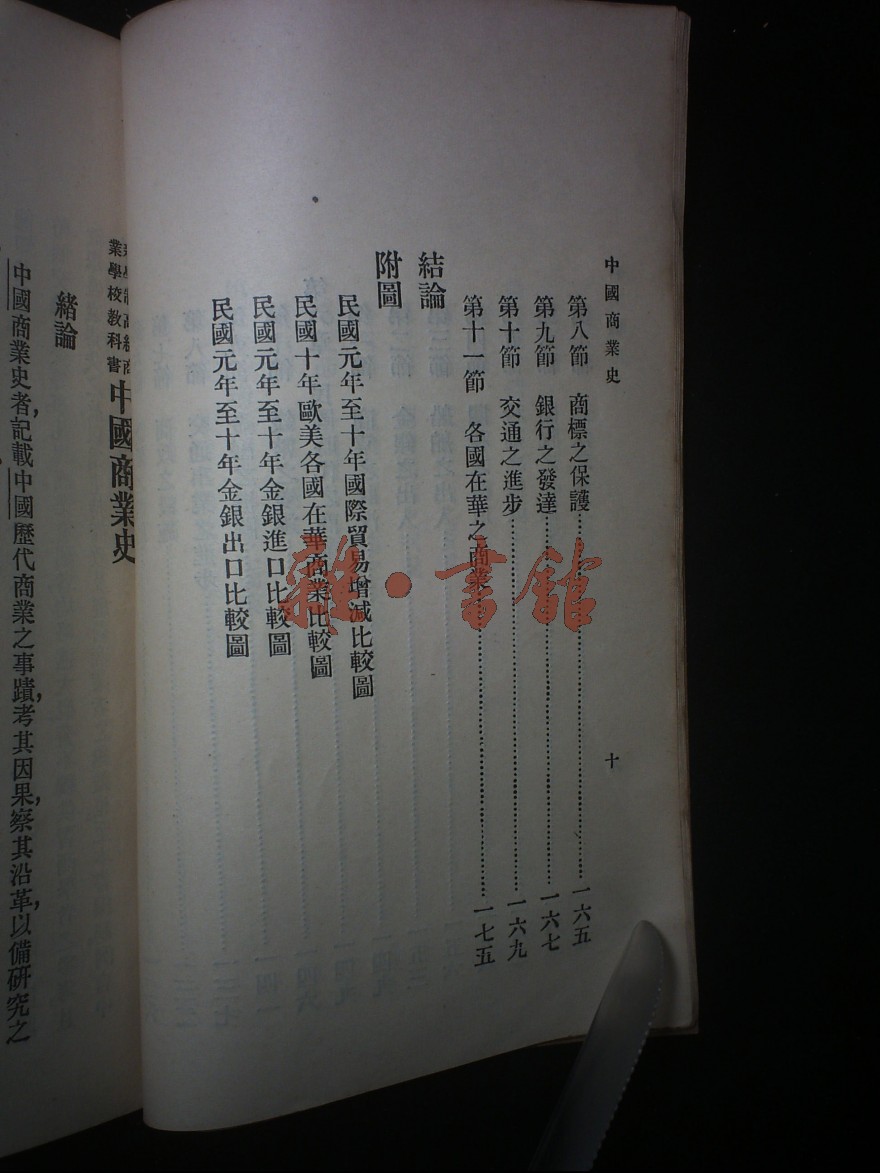 中國商業史
十
第八節 商標之保護…………一六五
第九節 銀行之發達…………一六七
第十節 交通之進步…………一六九
第十一節 各國在華之商業…………一七五
結論
附圖
民國元年至十年國際貿易增減比較圖
民國十年歐美各國在華商業比較圖
民國元年至十年金銀進口比較圖
民國元年至十年金銀出口比較圖
雜·書館
業學校教科書
中國商業史
緒論
中國商業史者,記載中國歷代商業之事蹟,考其因果,察其沿革,以備研究之